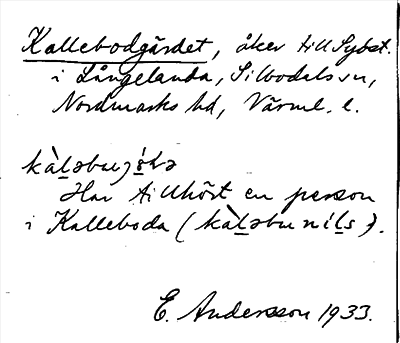 Kallebodgärdet, åker till Sybst.
i Långelanda, Silbodals sn,
Nordmarks hd, Värml. l.
Har tillhört en person
i Kalleboda (kàl̲əbu níl̲s).
E. Andersson 1933.